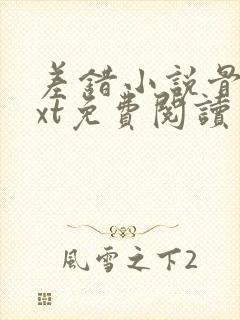 差錯小說最
xt免費閱讀
風雪之下2